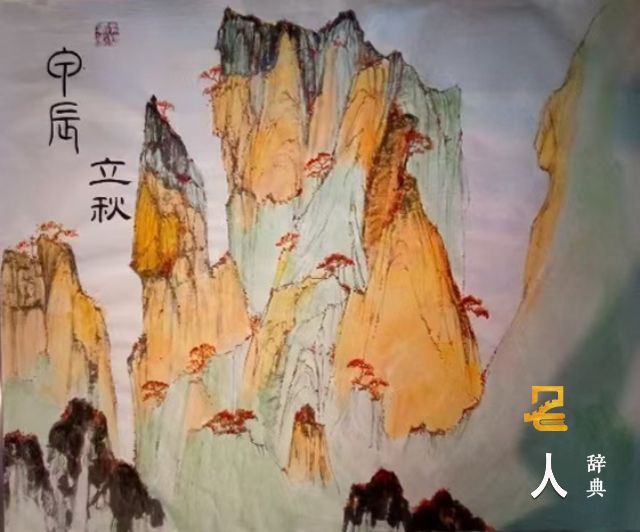 甲辰
立秋
人
辞典